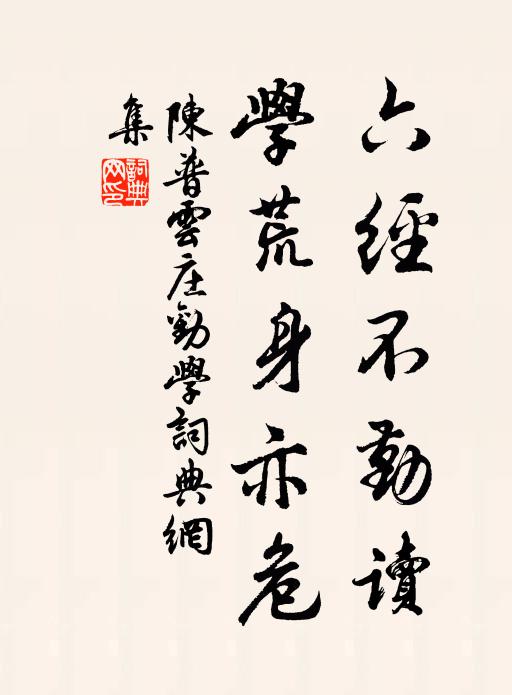 六經不勤讀
學荒身亦危
陳普雲庄勸學詞典網
集
詞典網印